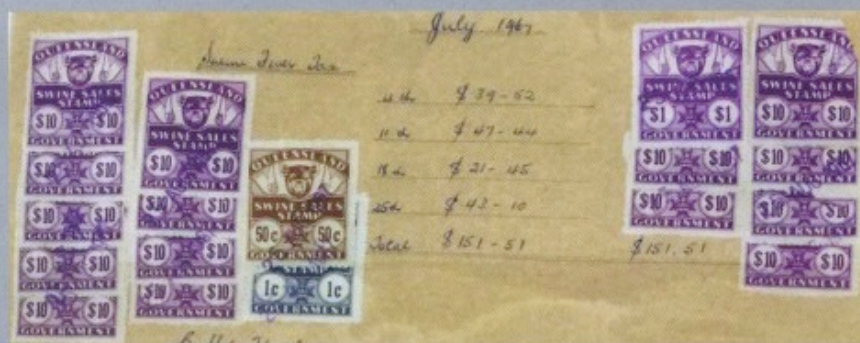 July 1967
Swine Fever Tax
4th $ 39-52
11th $ 47-44
18th $ 21-45
25th $ 43-10
Total $151-51 $151.51
QUEENSLAND
SWINE SALES
STAMP
$10 $10
GOVERNMENT
$10 $10
GOVERNMENT
$10 $10
GOVERNMENT
$10 $10
GOVERNMENT
$10 $10
GOVERNMENT
QUEENSLAND
SWINE SALES
STAMP
$10 $10
GOVERNMENT
$10 $10
GOVERNMENT
$10 $10
GOVERNMENT
$10 $10
GOVERNMENT
QUEENSLAND
SWINE SALES
STAMP
50c 50c
GOVERNMENT
STAMP
1c 1c
GOVERNMENT
QUEENSLAND
SWINE SALES
STAMP
$1 $1
GOVERNMENT
$10 $10
GOVERNMENT
$10 $10
GOVERNMENT
QUEENSLAND
SWINE SALES
STAMP
$10 $10
GOVERNMENT
$10 $10
GOVERNMENT
$10 $10
GOVERNMENT
$10 $10
GOVERNMENT